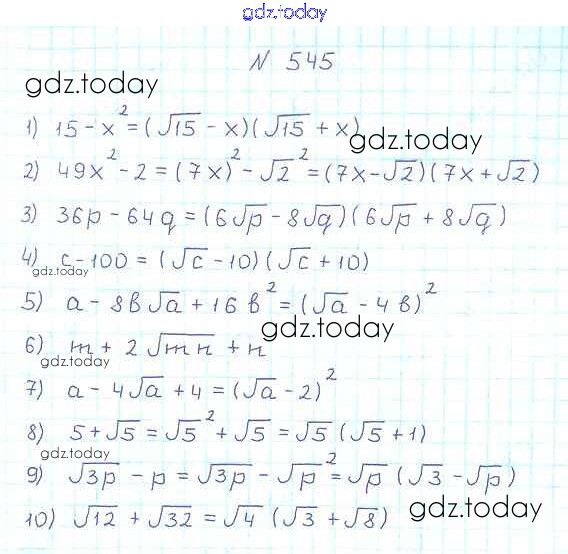 gdz.today
N 545
gdz.today
1) 15 - x² = (√15 - x)(√15 + x)
gdz.today
2) 49x² - 2 = (7x)² - √2² = (7x - √2)(7x + √2)
3) 36p - 64q = (6√p - 8√q)(6√p + 8√q)
4) c - 100 = (√c - 10)(√c + 10)
gdz.today
5) a - 8b√a + 16b² = (√a - 4b)²
gdz.today
6) m + 2√mn + n
gdz.today
7) a - 4√a + 4 = (√a - 2)²
8) 5 + √5 = √5² + √5 = √5 (√5 + 1)
gdz.today
9) √3p - p = √3p - √p² = √p (√3 - √p)
gdz.today
10) √12 + √32 = √4 (√3 + √8)